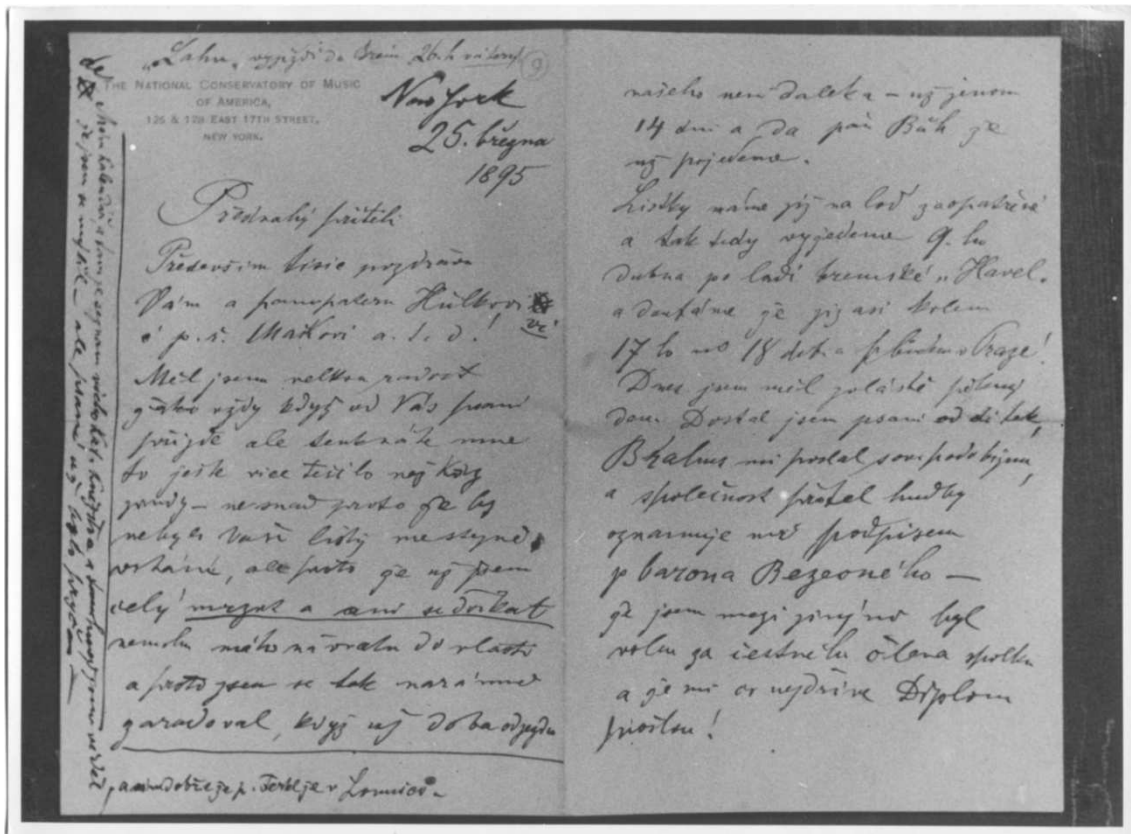 "Lahn" vyjíždí do Brém 26.h večer
9
THE NATIONAL CONSERVATORY OF MUSIC
OF AMERICA,
126 & 128 EAST 17TH STREET,
NEW YORK.
New York
25. března
1895
Předrahý příteli
Především tisíc pozdravů
Vám a panopateru Hůlkovi
i p. ř. Maškovi a. t. d.!
Měl jsem velkou radost
jako vždy když od Vás psaní
přijde ale tentokráte mne
to ještě více těšilo než kdy
jindy – ne snad proto že by
nebyly Vaše listy me stejně
vítané, ale proto že už jsem
celý mrzut a ani se dočkat
nemohu mého návratu do vlasti
a proto jsem se tak náramně
zaradoval, když už doba odjezdu
našeho není daleka – už jenom
14 dní a dá pán Bůh že
už pojedeme.
Lístky máme již na loď zaopatřené
a tak tedy vyjedeme 9.ho
dubna po lodi bremské „Havel"
a doufáme že již asi kolem
17 ho neb 18 dub. a budem v Praze!
Dnes jsem měl zvláště pěkný
den. Dostal jsem psaní od dítek,
Brahms mi poslal svou podobiznu,
a společnost přátel hudby
oznamuje mě podpisem
p barona Bezecného —
že jsem mezi jinými byl
volen za čestného člena spolku
a že mi co nejdříve Diplom
pošlou!
a že jsem se mýlil – ale psaní už bylo pryč